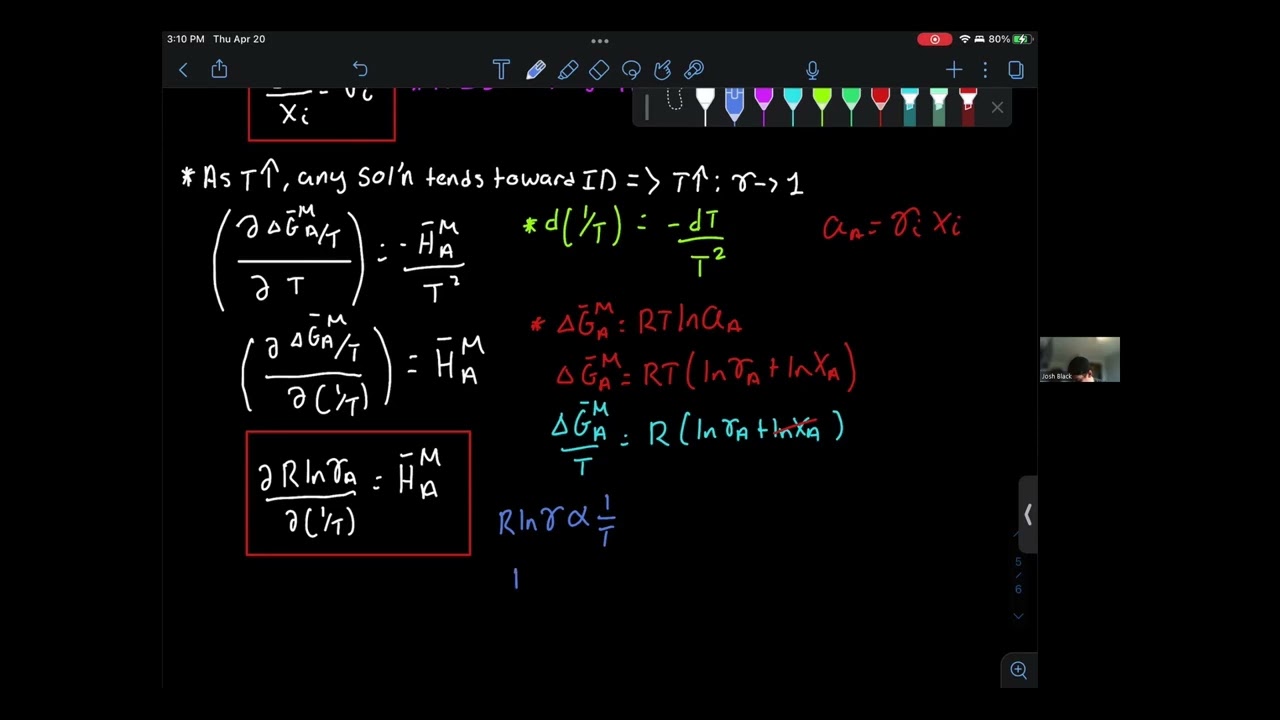 3:10 PM Thu Apr 20
80%
T
Xi
* As T↑, any Sol'n tends toward ID => T↑: γ -> 1
(∂ ΔḠ_A^M/T / ∂ T) = -H̄_A^M / T²
* d(1/T) = -dT / T²
a_A = γi Xi
* ΔḠ_A^M = RT ln a_A
(∂ ΔḠ_A^M/T / ∂(1/T)) = H̄_A^M
ΔḠ_A^M = RT (ln γ_A + ln X_A)
ΔḠ_A^M / T = R (ln γ_A + ln X_A)
∂ R ln γ_A / ∂(1/T) = H̄_A^M
R ln γ ∝ 1/T
l
5
/
6
Josh Black